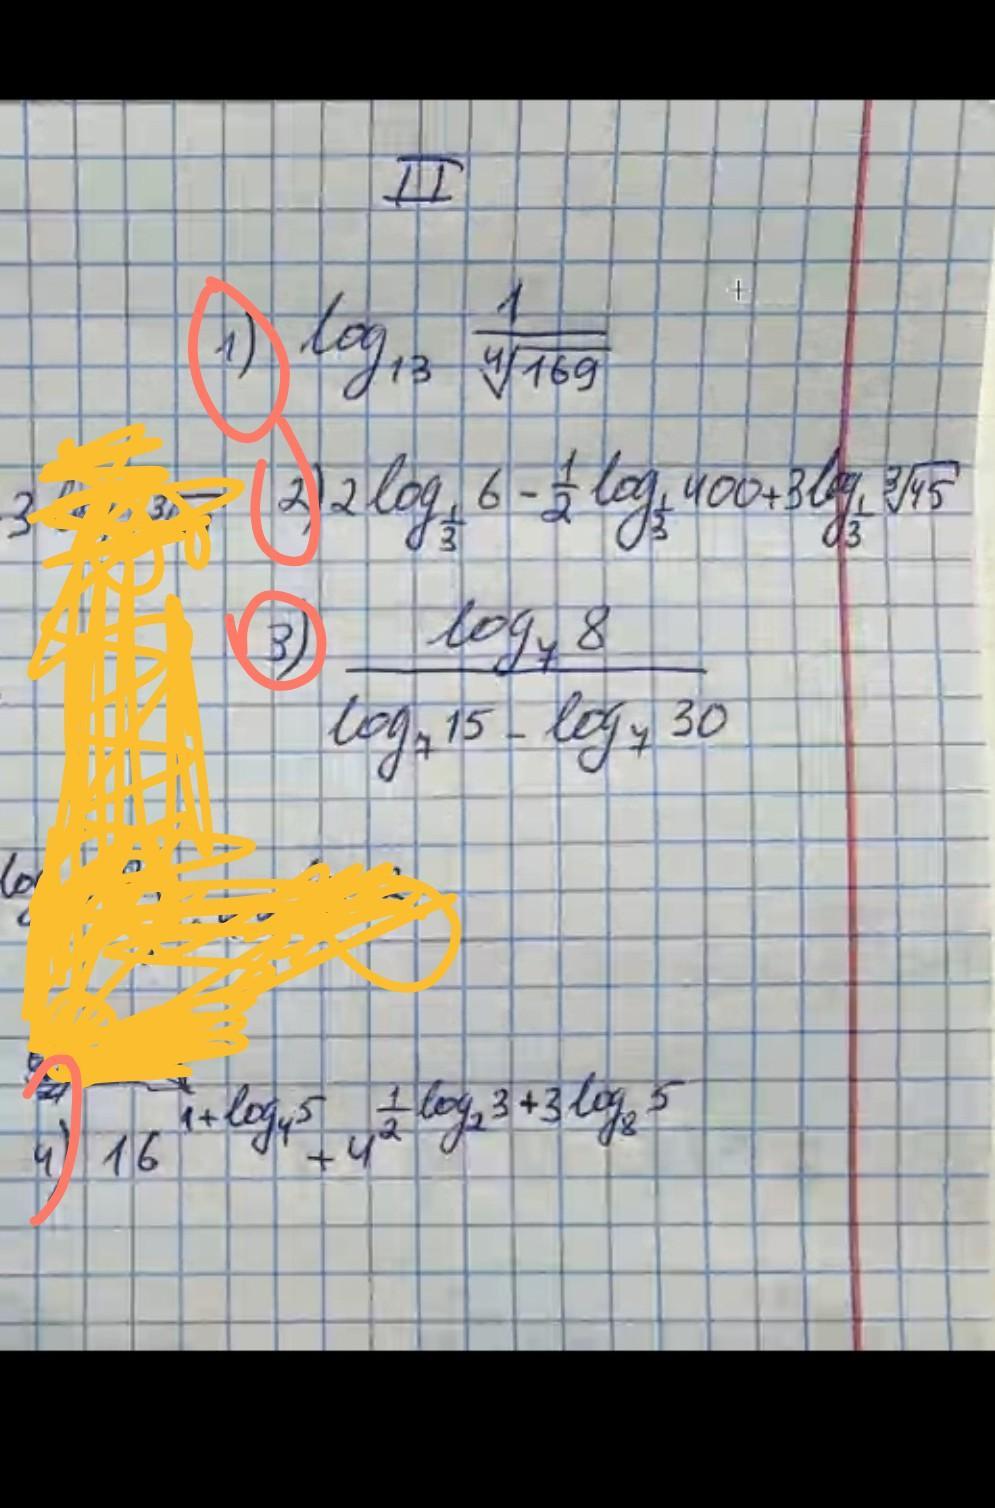 II
1) log₁₃ 1/⁴√169
3 2) 2 log_{1/3} 6 - 1/2 log_{1/3} 400 + 3 log_{1/3} ³√45
3) log₇ 8 / (log₇ 15 - log₇ 30)
4) 16^{1+log₄5} + 4^{1/2 log₂3 + 3 log₈5}